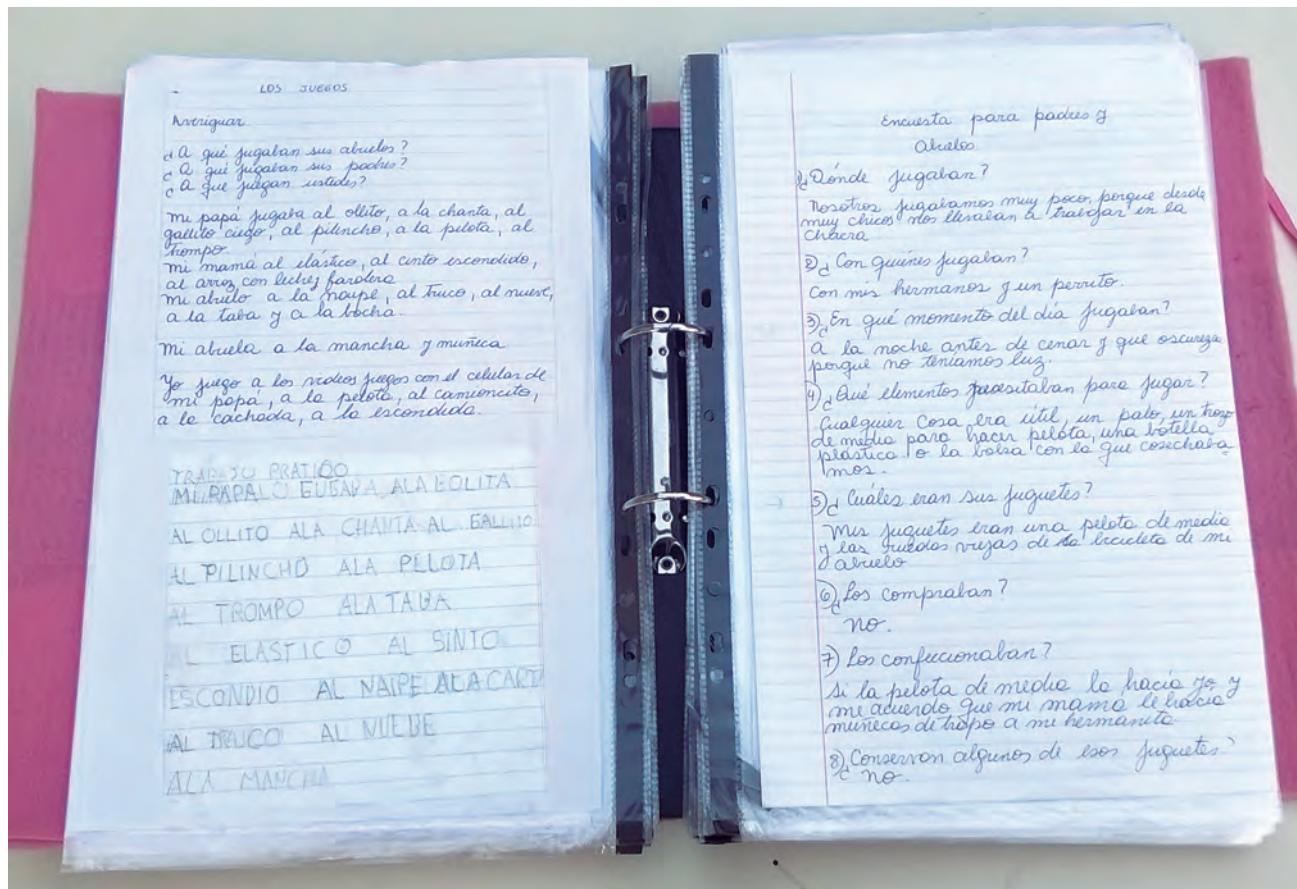 LOS JUEGOS
Averiguar
¿A qué jugaban sus abuelos?
¿A qué jugaban sus padres?
¿A que juegan ustedes?
Mi papá jugaba al ollito, a la chanta, al
gallito ciego, al pilincho, a la pelota, al
trompo.
Mi mamá al elástico, al cinto escondido,
al arroz con leche y farolera
Mi abuelo a la naipe, al truco, al nueve,
a la taba y a la bocha.
Mi abuela a la mancha y muñeca
Yo juego a los videos juegos con el celular de
mi papá, a la pelota, al camioncito,
a la cachada, a la escondida.
TRABAJO PRATICO
MI PAPA LO GUGAVA ALA BOLITA
AL OLLITO ALA CHANTA AL GALLITO
AL PILINCHO ALA PELOTA
AL TROMPO ALA TABA
AL ELASTICO AL SINTO
ESCONDIO AL NAIPE ALA CART
AL TRUCO AL NUEBE
ALA MANCHA
Encuesta para padres y
Abuelos
1)¿Dónde jugaban?
Nosotros jugabamos muy poco, porque desde
muy chicos nos llevaban a trabajar en la
chacra
2)¿Con quiénes jugaban?
Con mis hermanos y un perrito.
3)¿En qué momento del día jugaban?
A la noche antes de cenar y que oscurezca
porque no teniamos luz.
4)¿Qué elementos necesitaban para jugar?
Cualquier cosa era útil, un palo, un trozo
de media para hacer pelota, una botella
plástica o la bolsa con la que cosechaba
mos.
5)¿Cuáles eran sus juguetes?
Mis juguetes eran una pelota de media
y las ruedas viejas de la bicicleta de mi
abuelo
6)¿Los compraban?
no.
7) Los confeccionaban?
Si la pelota de media la hacía yo y
me acuerdo que mi mamá le hacía
muñecas de trapo a mi hermanita
8)¿Conservan algunos de esos juguetes?
no.